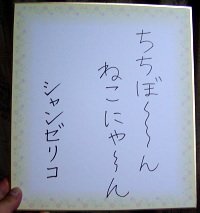 ちちぼ〜〜ん
ねこにゃ〜ん
シャンゼリコ